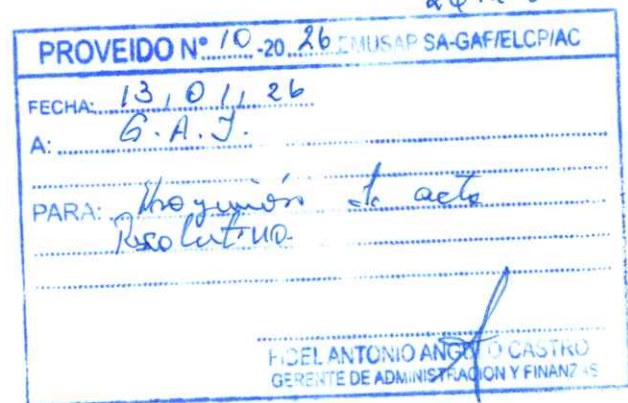 PROVEIDO Nº 10 -20 26 EMUSAP SA-GAF/ELCP/AC
FECHA: 13, 01, 26
A: G.A.J.
PARA: de acto
Resolutivo
FIDEL ANTONIO ANGULO CASTRO
GERENTE DE ADMINISTRACION Y FINANZAS